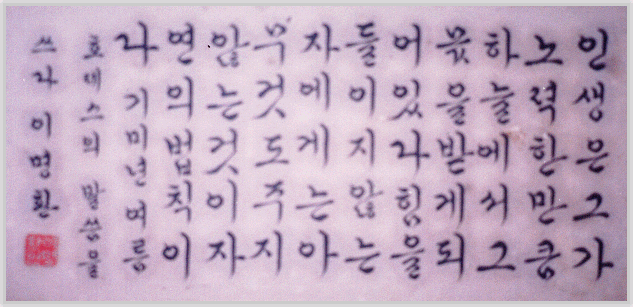 인생은그가
노력한만큼
하늘에서그
몫을받게되
어있다힘을
들이지않는
자에게는아
무것도주지
않는것이자
연의법칙이
다 기미년여름
호레스의 말씀을
쓰다 이명환